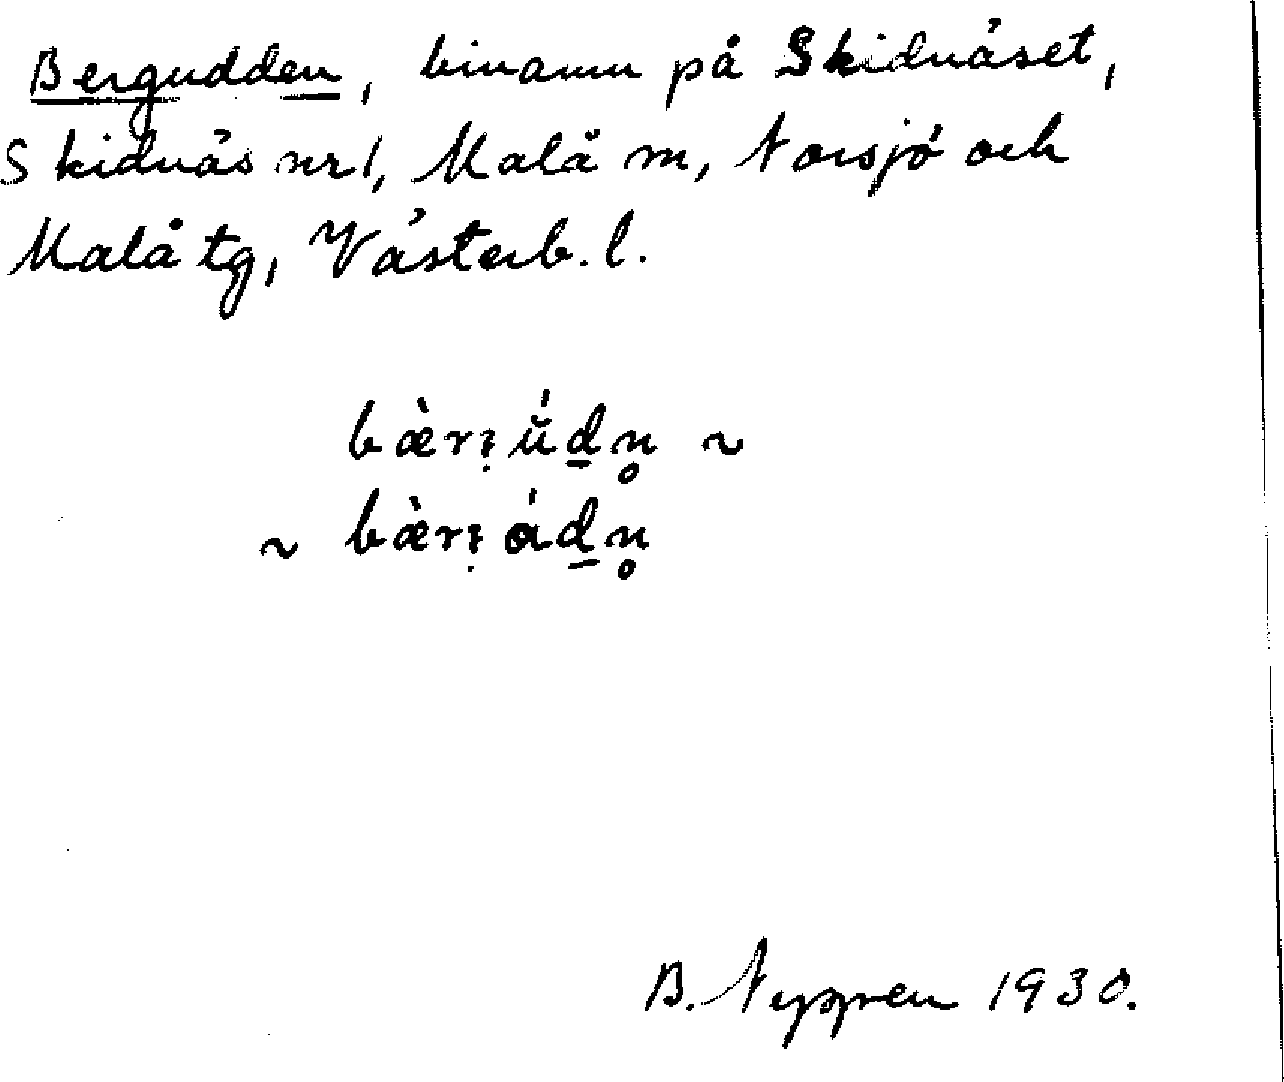 Bergudden, binamn på Skidnäset,
Skidnäs nr 1, Malå m, Norsjö och
Malå tg, Västerb. l.
~
~
B. Nygren 1930.